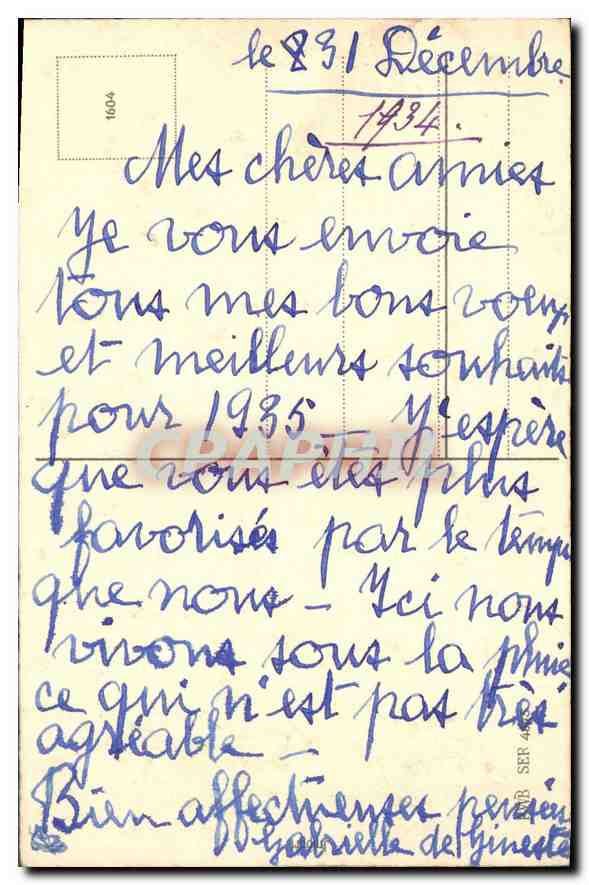 le 831 Décembre
1934.
1604
Mes chères amies
Je vous envoie
tous mes bons voeux
et meilleurs souhaits
pour 1935 _ J'espère
CPARTHIL
que vous êtes plus
favorisés par le temps
que nous _ Ici nous
vivons sous la pluie
ce qui n'est pas très
agréable _
SER
Bien affectueuses pensées
Gabrielle de Gineste